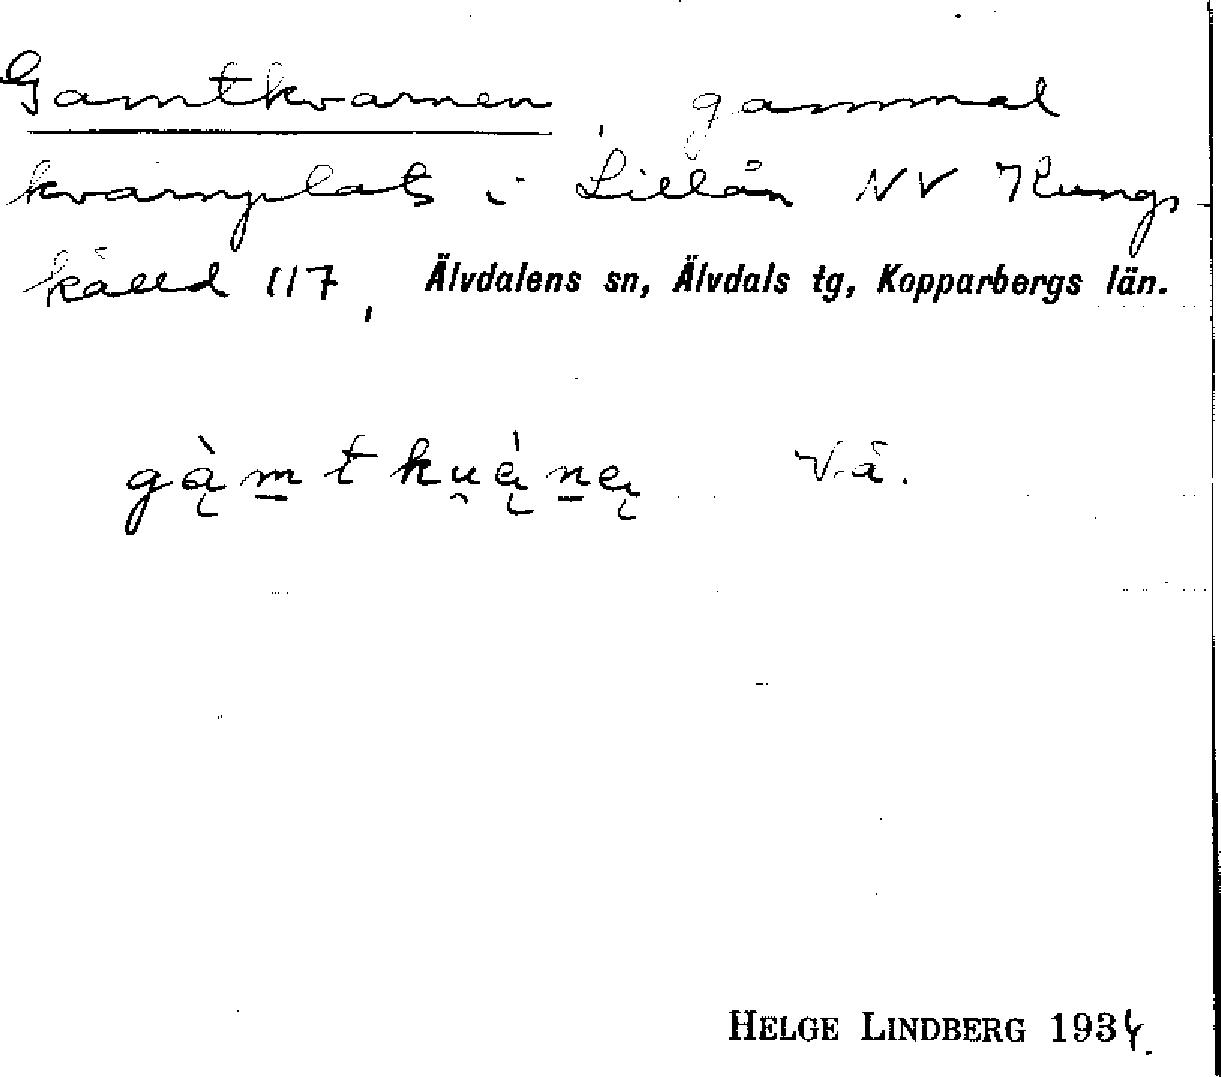 Gamtkvarnen, gammal
kvarnplats i Lillån NV Kungs-
källd 117, Älvdalens sn, Älvdals tg, Kopparbergs län.
Vä.
HELGE LINDBERG 1934.